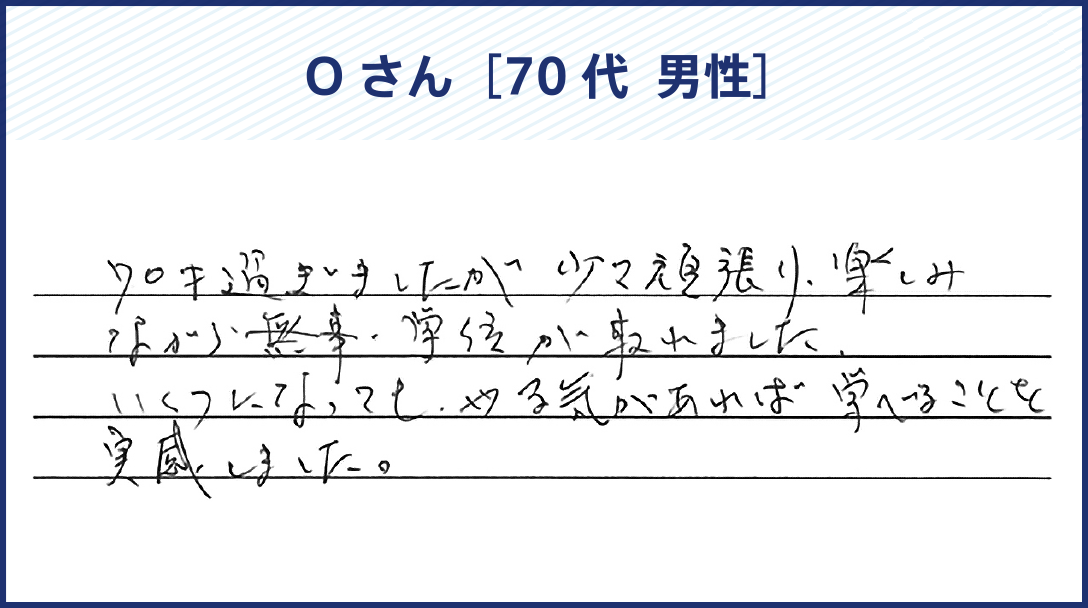 Oさん［70代 男性］
70才過ぎましたが 少々頑張り、楽しみ
ながら無事、学位が取れました、
いくつになっても、やる気があれば 学べることを
実感しました。